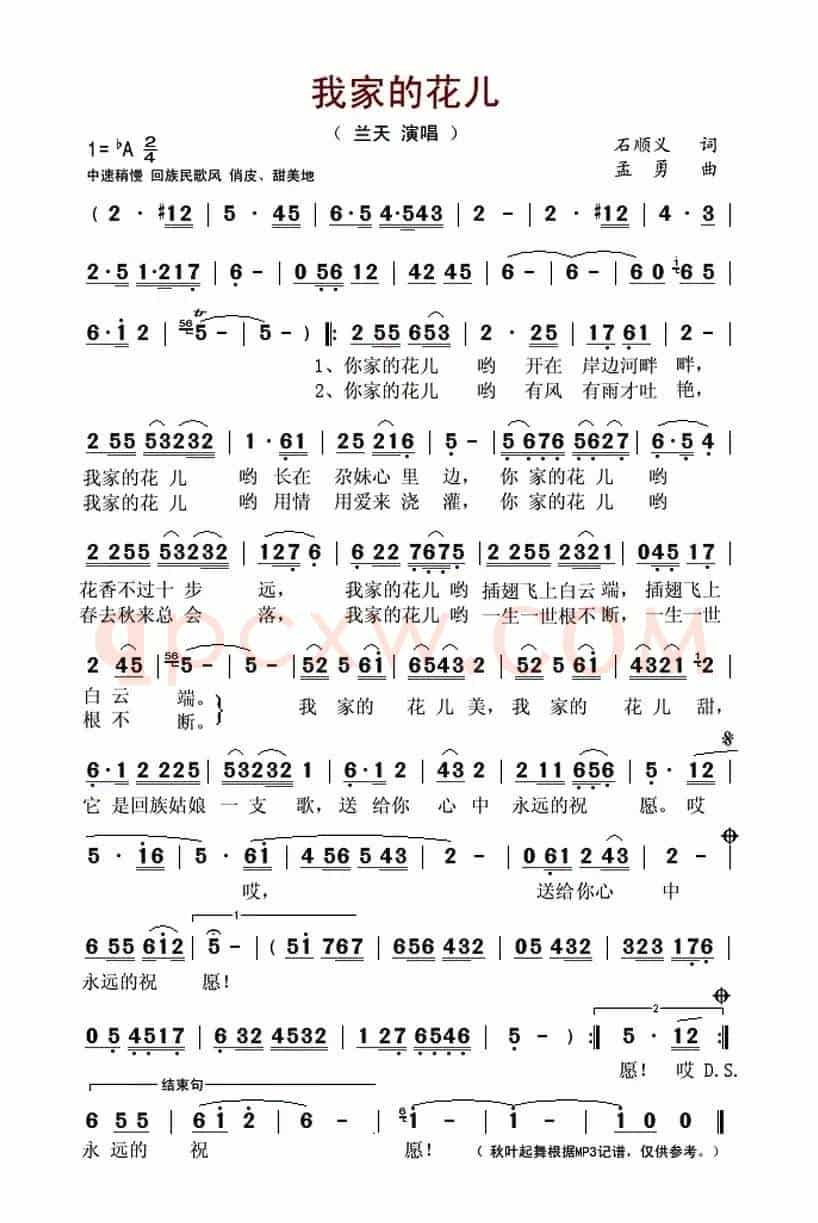 我家的花儿
( 兰天 演唱 )
1= ♭A 2/4
石顺义 词
中速稍慢 回族民歌风 俏皮、甜美地
孟 勇 曲
( 2 · #12 | 5 · 45 | 6·5 4·543 | 2 - | 2 · #12 | 4 · 3 |
2·5 1·217 | 6 - | 0 56 12 | 42 45 | 6 - | 6 - | 60 1 6 5 |
6·1 2 | 56 5 - | 5 - ) ‖: 2 55 653 | 2 · 25 | 17 61 | 2 - |
1、你家的花儿 哟 开在 岸边河畔 畔,
2、你家的花儿 哟 有风 有雨才吐 艳,
2 55 53232 | 1 · 61 | 25 216 | 5 - | 5 676 5627 | 6·5 4 |
我家的花 儿 哟 长在 尕妹心 里 边, 你 家的花 儿 哟
我家的花 儿 哟 用情 用爱来 浇 灌, 你 家的花 儿 哟
2 255 53232 | 127 6 | 6 22 7675 | 2 255 2321 | 045 17 |
花香不过十 步 远, 我家的花儿 哟 插翅飞上白云 端, 插翅飞上
春去秋来总 会 落, 我家的花儿 哟 一生一世根不 断, 一生一世
2 45 | 56 5 - | 5 - | 52 5 61 | 6543 2 | 52 5 61 | 4321 1 2 |
白 云 端。
根 不 断。
我 家的 花 儿 美, 我 家的 花 儿 甜,
qpcxw.com
6·1 2 225 | 53232 1 | 6·1 2 | 43 2 | 2 11 656 | 5 · 12 |
它 是回族姑娘 一 支 歌, 送 给你 心 中 永远的祝 愿。 哎
5 · 16 | 5 · 61 | 4 56 543 | 2 - | 0 61 2 43 | 2 - |
哎, 送给你心 中
1
6 55 612 | 5 - | ( 51 767 | 656 432 | 05 432 | 323 176 |
永远的祝 愿!
2
0 5 4517 | 6 32 4532 | 1 27 6546 | 5 - ) :‖ 5 · 12 :‖
愿! 哎 D.S.
结束句
6 55 | 61 2 | 6 - | 6 1 - | 1 - | 1 0 0 ‖
永 远的 祝 愿! ( 秋叶起舞根据MP3记谱,仅供参考。)